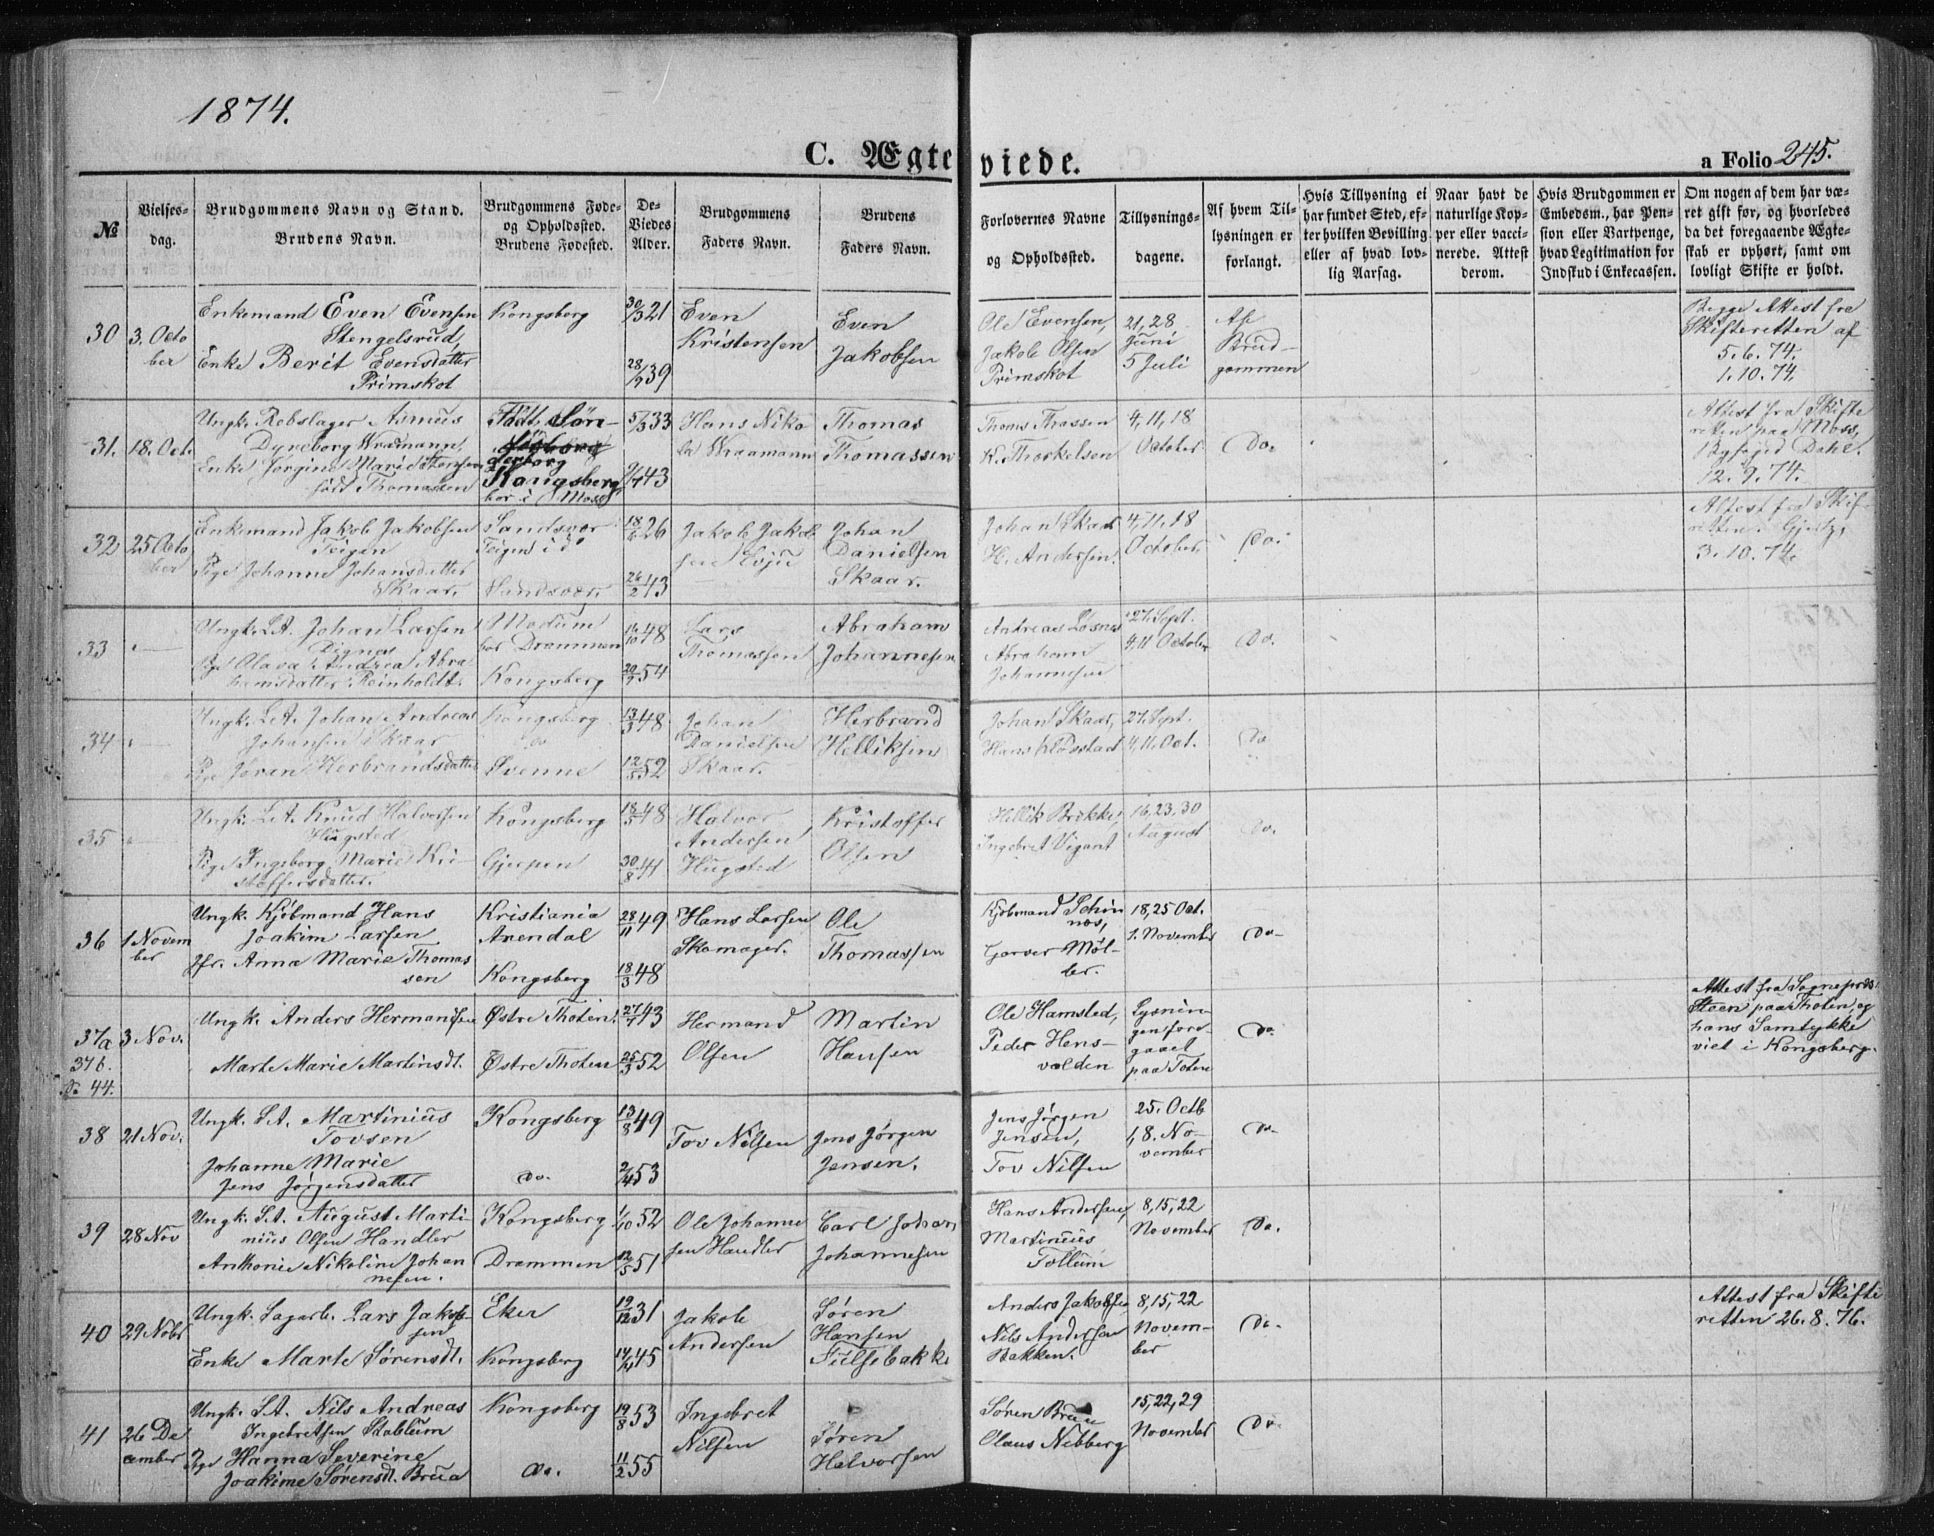 1874.
C. Ægteviede.
a Folio 245.
№
Vielses-
dag.
Brudgommens Navn og Stand.
Brudens Navn.
Brudgommens Føde-
og Opholdssted.
Brudens Fødested.
De
Viedes
Alder.
Brudgommens
Faders Navn.
Brudens
Faders Navn.
Forlovernes Navne
og Opholdssted.
Tillysnings-
dagene.
Af hvem Til-
lysningen er
forlangt.
Hvis Tillysning ei
har fundet Sted, ef-
ter hvilken Bevilling
eller af hvad lov-
lig Aarsag.
Naar havt de
naturlige Kop-
per eller vacci-
nerede. Attest
derom.
Hvis Brudgommen er
Embedsm., har Pen-
sion eller Vartpenge,
hvad Legitimation for
Indskud i Enkecassen.
Om nogen af dem har væ-
ret gift før, og hvorledes
da det foregaaende Ægte-
skab er ophørt, samt om
lovligt Skifte er holdt.
30
3. Octo
ber
Enkemand Even Evensen
Stengelsrud,
Enke Berit Evensdatter
Primskot
Kongsberg
30/3 21
28/9 39
Even
Kristensen
Even
Jakobsen
Ole Evensen,
Jakob Olsen
Primskot
21, 28
Juni
5 Juli
Af
Brud-
gommen
Begge Attest fra
Skifteretten af
5.6.74.
1.10.74.
31.
18. Oct.
Ungk. Rebslager Asmus
Dyneborg Wraamann,
Enke Jørgine Marie
født Thomassen
Født Søn-
derborg
Kongsberg
bor i Moss
5/3 33
9/7 43
Hans Niko
lai Wraamann
Thomas
Thomassen
Thoms Thrassen
K. Thorkelsen
4, 11, 18
October
Do.
Attest fra Skifte
retten paa Moss,
Byfoged Dahl.
12.9.74.
32
25 Octo
ber
Enkemand Jakob Jakobsen
Teigen
Pige Johanne Johansdatter
Skaar.
Sandsvær
Teigen i do
Sandsvær.
18/6 26
26/2 43
Jakob Jakob
sen Evju
Johan
Danielsen
Skaar.
Johan Skaar
H. Andersen.
4, 11, 18
October.
Do.
Attest fra Skif-
retten. Gjertz,
3.10.74.
33
Ungk. L.A. Johan Larsen
Dignes
Pige Olava Andrea Abra
hamsdatter Reinholdt.
Modum
bor Drammen
Kongsberg
14/10 48
20/9 54
Lars
Thomassen
Abraham
Johannesen
Andreas Løsnes
Abraham
Johannesen
27. Sept.
4, 11 October
Do.
34
Ungk. L.A. Johan Andreas
Johansen Skaar
Pige Jøran Herbrandsdatter
Kongsberg
do
Øvenne
13/3 48
12/5 52
Johan
Danielsen
Skaar.
Herbrand
Helliksen
Johan Skaar,
Hans Klosstad
27. Sept.
4, 11. Oct.
Do
35
Ungk. L.A. Knud Halvorsen
Hugsted
Pige Ingeborg Marie Kri-
stoffersdatter.
Kongsberg
Gjerpen
18/5 48
30/8 44
Halvor
Andersen
Hugsted
Kristoffer
Olsen
Hellik Brekke,
Ingebret Vigant
16, 23, 30
August
Do.
36
1 Novem
ber
Ungk. Kjøbmand Hans
Joakim Larsen
Jfr. Anna Marie Thomas
sen
Kristiania
Arendal
Kongsberg
28/11 49
18/3 48
Hans Larsen
Skomager.
Ole
Thomassen
Kjøbmand Schin
nes,
Garver Møl-
ler.
18, 25 Oct.
1. November
Do.
37a
37b.
No 44.
3 Nov.
Ungk. Anders Hermansen
Marte Marie Martinsdt.
Østre Thoten.
Østre Thoten
27/7 43
25/3 52
Hermand
Olsen
Martin
Hansen
Ole Hamsted,
Peder Hens-
valden
Lysnin-
gen fore-
gaaet
paa Toten
Do.
Attest fra Sognepr.
Steen paa Thoten, og
hans Samtykke
viet i Kongsberg.
38
21 Nov.
Ungk. S.A. Martinius
Tovsen
Johanne Marie
Jens Jørgensdatter
Kongsberg
do.
13/8 49
2/4 53
Tov Nilsen
Jens Jørgen
Jensen.
Jens Jørgen
Jensen,
Tov Nilsen
25. Octb
1, 8. No-
vember
Do.
39
28 Nov
Ungk. S.A. August Marti-
nius Olsen Handler
Anthonie Nikoline Johan
nesen.
Kongsberg
Drammen
1/10 52
12/5 51
Ole Johanne
sen Handler
Carl Johan
Johannesen
Hans Andersen,
Martinius
Follum
8, 15, 22
November
Do.
40
29 Nobr
Ungk. Sagarb. Lars Jakob-
sen
Enke Marte Sørensdt.
Eker
Kongsberg
19/12 31
14/4 45
Jakob
Andersen
Søren
Hansen
Tulsebakke
Anders Jakobsen
Nils Andersen
Bakken.
8, 15, 22
Novem-
ber
Do.
Attest fra Skifte
retten 26.8.76.
41
26 De
cember
Ungk. S.A. Nils Andreas
Ingebretsen Stablum
Pige Hanna Severine
Joakime Sørensdt. Brua
Kongsberg
do.
19/8 53
11/2 55
Ingebret
Nilsen
Søren
Halvorsen
Søren Brua
Olaus Nibberg
15, 22, 29
November
Do.